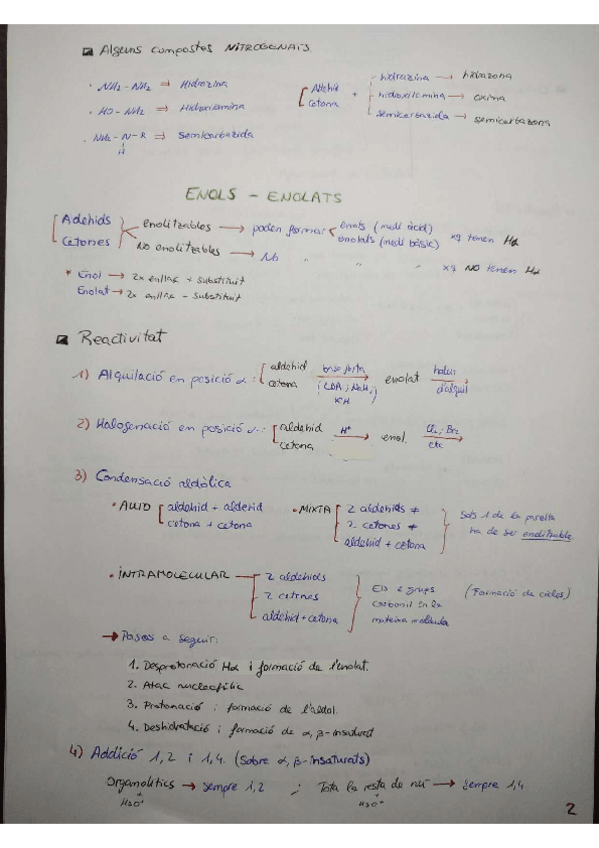 Alguns compostos NITROGENATS
· NH2-NH2 ⇒ Hidrazina
· HO-NH2 ⇒ Hidroxilamina
· NH2-N-R ⇒ Semicarbazida
H
Aldehid
Cetona
+
hidrazina → hidrazona
hidroxilamina → oxima
semicarbazida → semicarbazona
ENOLS - ENOLATS
Adehids
Cetones
enolitzables → poden formar
enols (medi àcid)
enolats (medi bàsic)
xq tenen Hα
NO enolitzables → No " "
xq NO tenen Hα
* Enol → 2x enllaç + substituit
Enolat → 2x enllaç - substituit
Reactivitat
1) Alquilació en posició α: aldehid
cetona
base forta
(LDA; NaH;
KH
enolat
halur
d'alquil
2) Halogenació en posició α: aldehid
cetona
H⁺
enol
Cl2; Br2
etc
3) Condensació aldòlica
• AUTO
aldehid + aldehid
cetona + cetona
• MIXTA
2 aldehids ≠
2 cetones ≠
aldehid + cetona
Sols 1 de la parella
ha de ser enolitzable
• INTRAMOLECULAR
2 aldehids
2 cetones
aldehid + cetona
Els 2 grups
carbonil en la
mateixa molècula
(Formació de cicles)
→ Passos a seguir:
1. Desprotonació Hα i formació de l'enolat.
2. Atac nucleofílic
3. Protonació i formació de l'aldol.
4. Deshidratació i formació de α,β-insaturat
4) Addició 1,2 i 1,4. (Sobre α,β-insaturats)
Organolítics → sempre 1,2 ; Tota la resta de nu⁻ → sempre 1,4
H3O⁺ H3O⁺
2